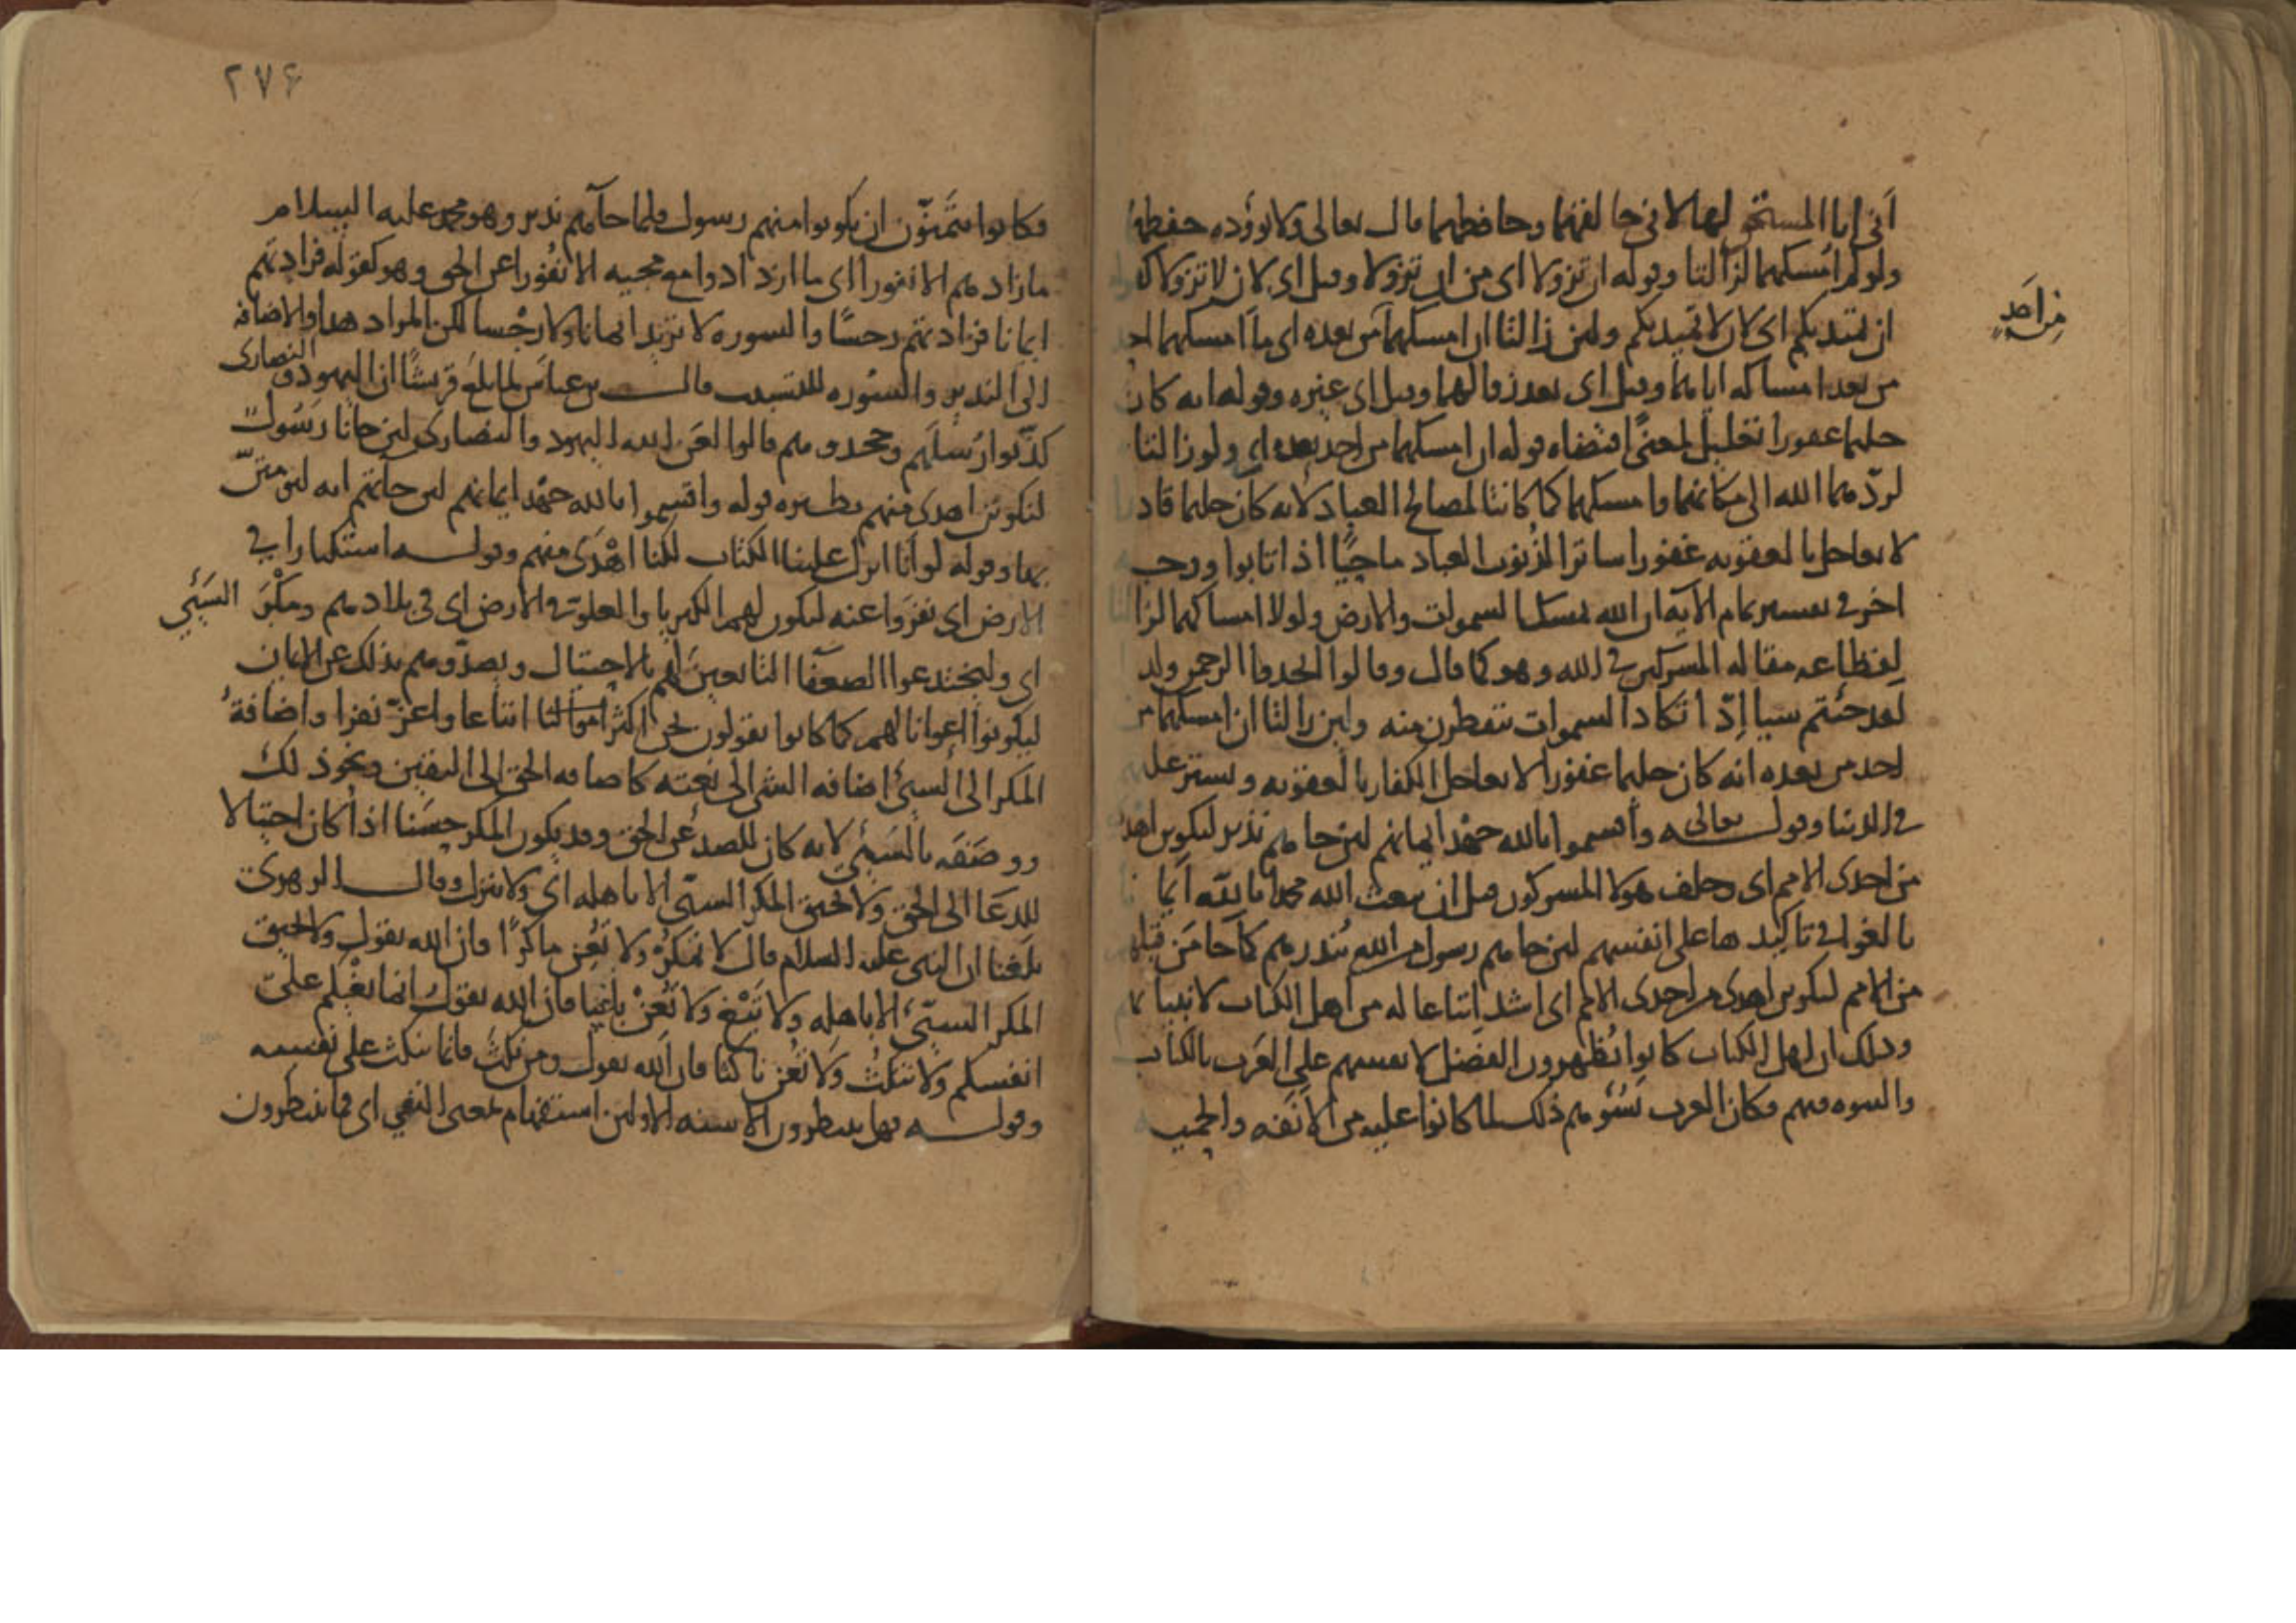 اني انا المستحق لهما لاني خالقهما وحافظهما قال تعالى ولا يؤوده حفظهما
ولو لم امسكهما لزالتا وقوله ان تزولا اي من ان تزولا وقيل اي لان لا تزولا كقوله
ان تميد بكم اي لان لا تميد بكم ولئن زالتا ان امسكهما من بعده اي ما امسكهما احد
من احد
من بعد امساكه اياهما وقيل اي بعد زوالهما وقيل اي غيره وقوله انه كان
حليما غفورا تعليل لمعنى اقتضاه قوله ان امسكهما من احد بعده اي ولو زالتا
لردهما الله الى مكانهما وامسكهما كما كانتا لمصالح العباد لانه كان حليما قادرا
لا يعاجل بالعقوبه غفورا ساترا لذنوب العباد ماحيا اذا تابوا ووجه
اخر في تفسير تمام الايه ان الله يمسك السموات والارض ولولا امساكهما لزالتا
لفظاعه مقاله المشركين في الله وهو كما قال وقالوا اتخذ الرحمن ولدا
لقد جئتم شيا إدّا تكاد السموات تتفطرن منه ولئن زالتا ان امسكهما من
احد من بعده انه كان حليما غفورا لا يعاجل الكفار بالعقوبه ويستر عليهم
في الدنيا وقوله تعالى واقسموا بالله جهد ايمانهم لئن جاهم نذير ليكونن اهدى
من احدى الامم اي وحلف هولا المشركون قبل ان يبعث الله محمدا بالله ايمانا
بالغوا في تاكيدها على انفسهم لئن جاهم رسول من الله ينذرهم كما جا من قبلهم
من الامم ليكونن اهدى من احدى الامم اي اشد اتباعا له من اهل الكتاب لانبيائهم
وذلك ان اهل الكتاب كانوا يُظهرون الفضل لانفسهم على العرب بالكتاب
والنبوه فيهم وكان العرب يسُؤهم ذلك لما كانوا عليه من الانفه والحميه
٢٧۶
وكانوا يتمنّون ان يكونوا منهم رسول فلما جآهم نذير وهو محمد عليه السلام
ما زادهم الا نفورا اي ما ازدادوا مع مجيه الا نُفورا عن الحق وهو كقوله فزادتهم
ايمانا فزادتهم رجسًا والسوره لا تزيد ايمانا ولا رجْسا لكن المراد هذا والاضافه
الى النذير والسوره للتسبيب قال بن عباس لما بلغ قريشًا ان اليهود والنصارى
كذّبوا رُسُلَهم وجحدوهم قالوا لعن الله اليهود والنصارى لئن جانا رسُولٌ
لنكونن اهدى منهم نظيره قوله واقسموا بالله جهد ايمانهم لئن جآتهم ايه ليؤمننّ
بها وقوله لو انا انزل علينا الكتاب لكنا اهْدَى منهم وقوله استكبارا في
الارض اي نفروا عنه ليكون لهم الكبريا والعلو في الارض اي في بلادهم ومكْرَ السَيّئِ
اي وليخدعوا الضعفا التابعين لهم بالاحتيال ويصدّوهم بذلك عن الايمان
ليكونوا اعوانا لهم كما كانوا يقولون نحن اكثر اموالنا اتباعا واعزّ نفرا واضافةُ
المكر الى السيئ اضافه الشئ الى نعته كاضافه الحق الى اليقين ونحو ذلك
ووصَفَه بالسَيّئ لانه كان للصدّ عن الحق وقد يكون المكر حسَنا اذا كان احتيالا
للدعَا الى الحق ولا يحيق المكر السيّئ الا باهله اي ولا ينزل وقال الزهري
بلغنا ان النبي عليه السلام قال لا تمكرْ ولا تُعِن ماكرًا فان الله يقول ولا يحيق
المكر السيّئ الا باهله ولا تَبْغ ولا تُعِنْ باغيا فان الله يقول انما بغْيكم على
انفسكم ولا تنكثْ ولا تُعن ناكثا فان الله يقول ومن نكثَ فانما ينكث على نفسه
وقوله فهل ينظرون الا سنه الاولين استفهام بمعنى النفي اي فما ينتظرون